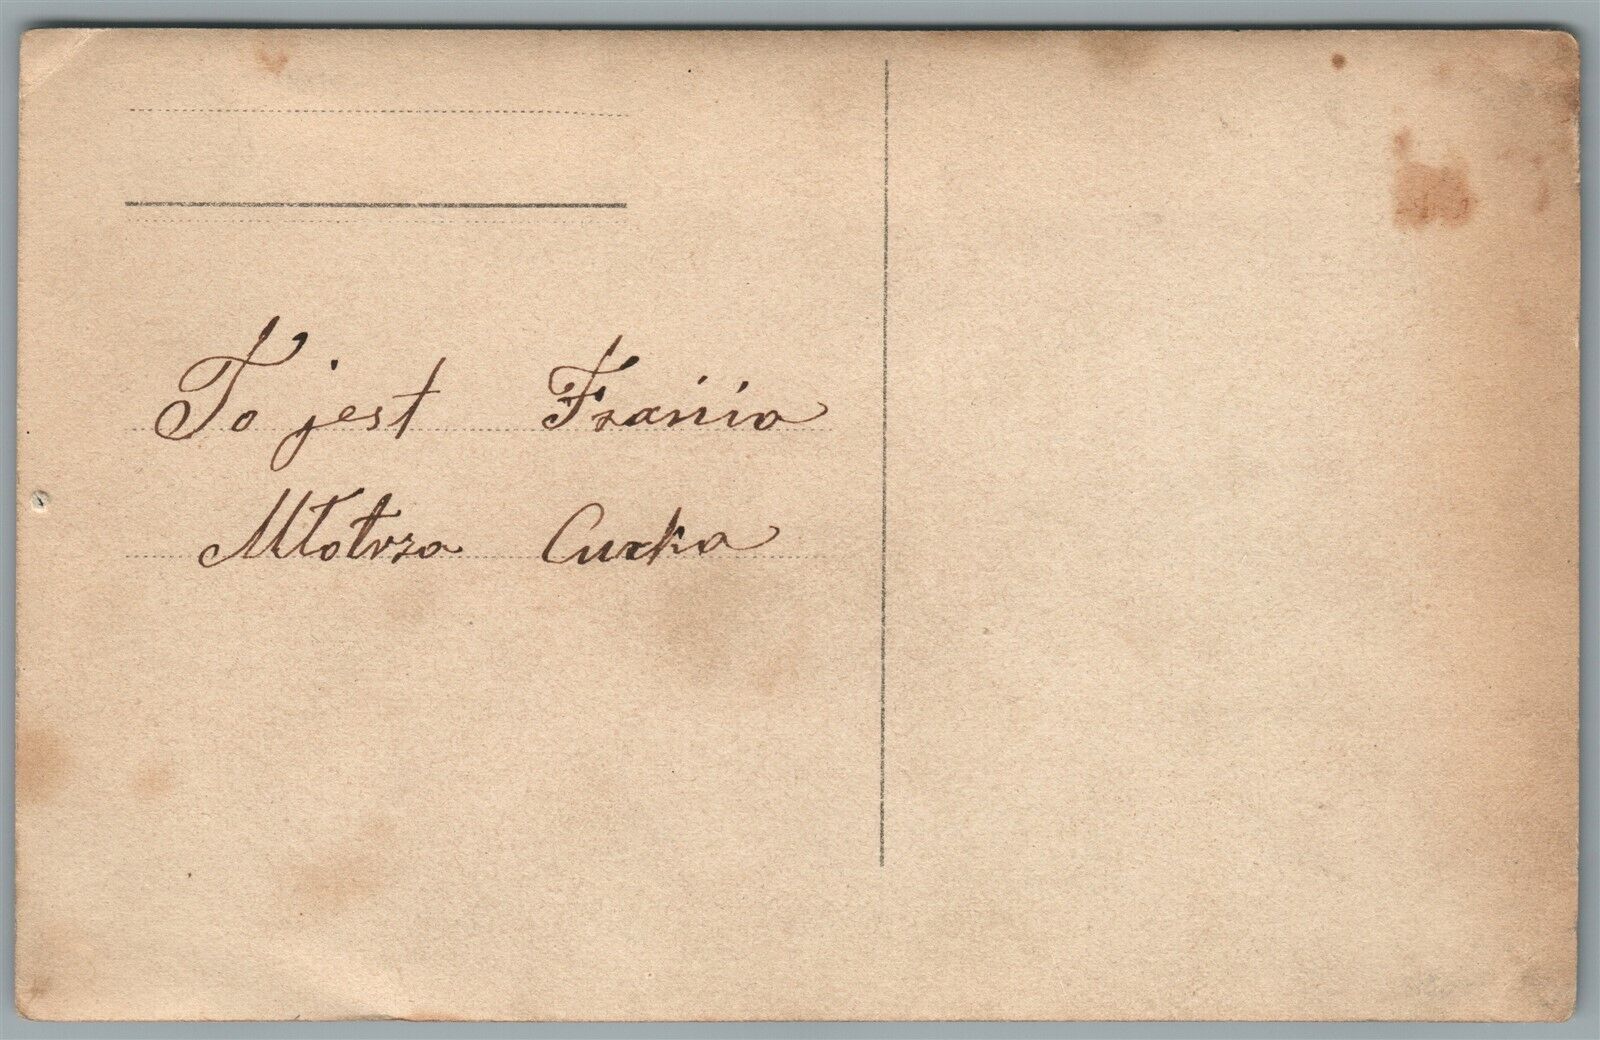 To jest Frania
Młotrza Curka